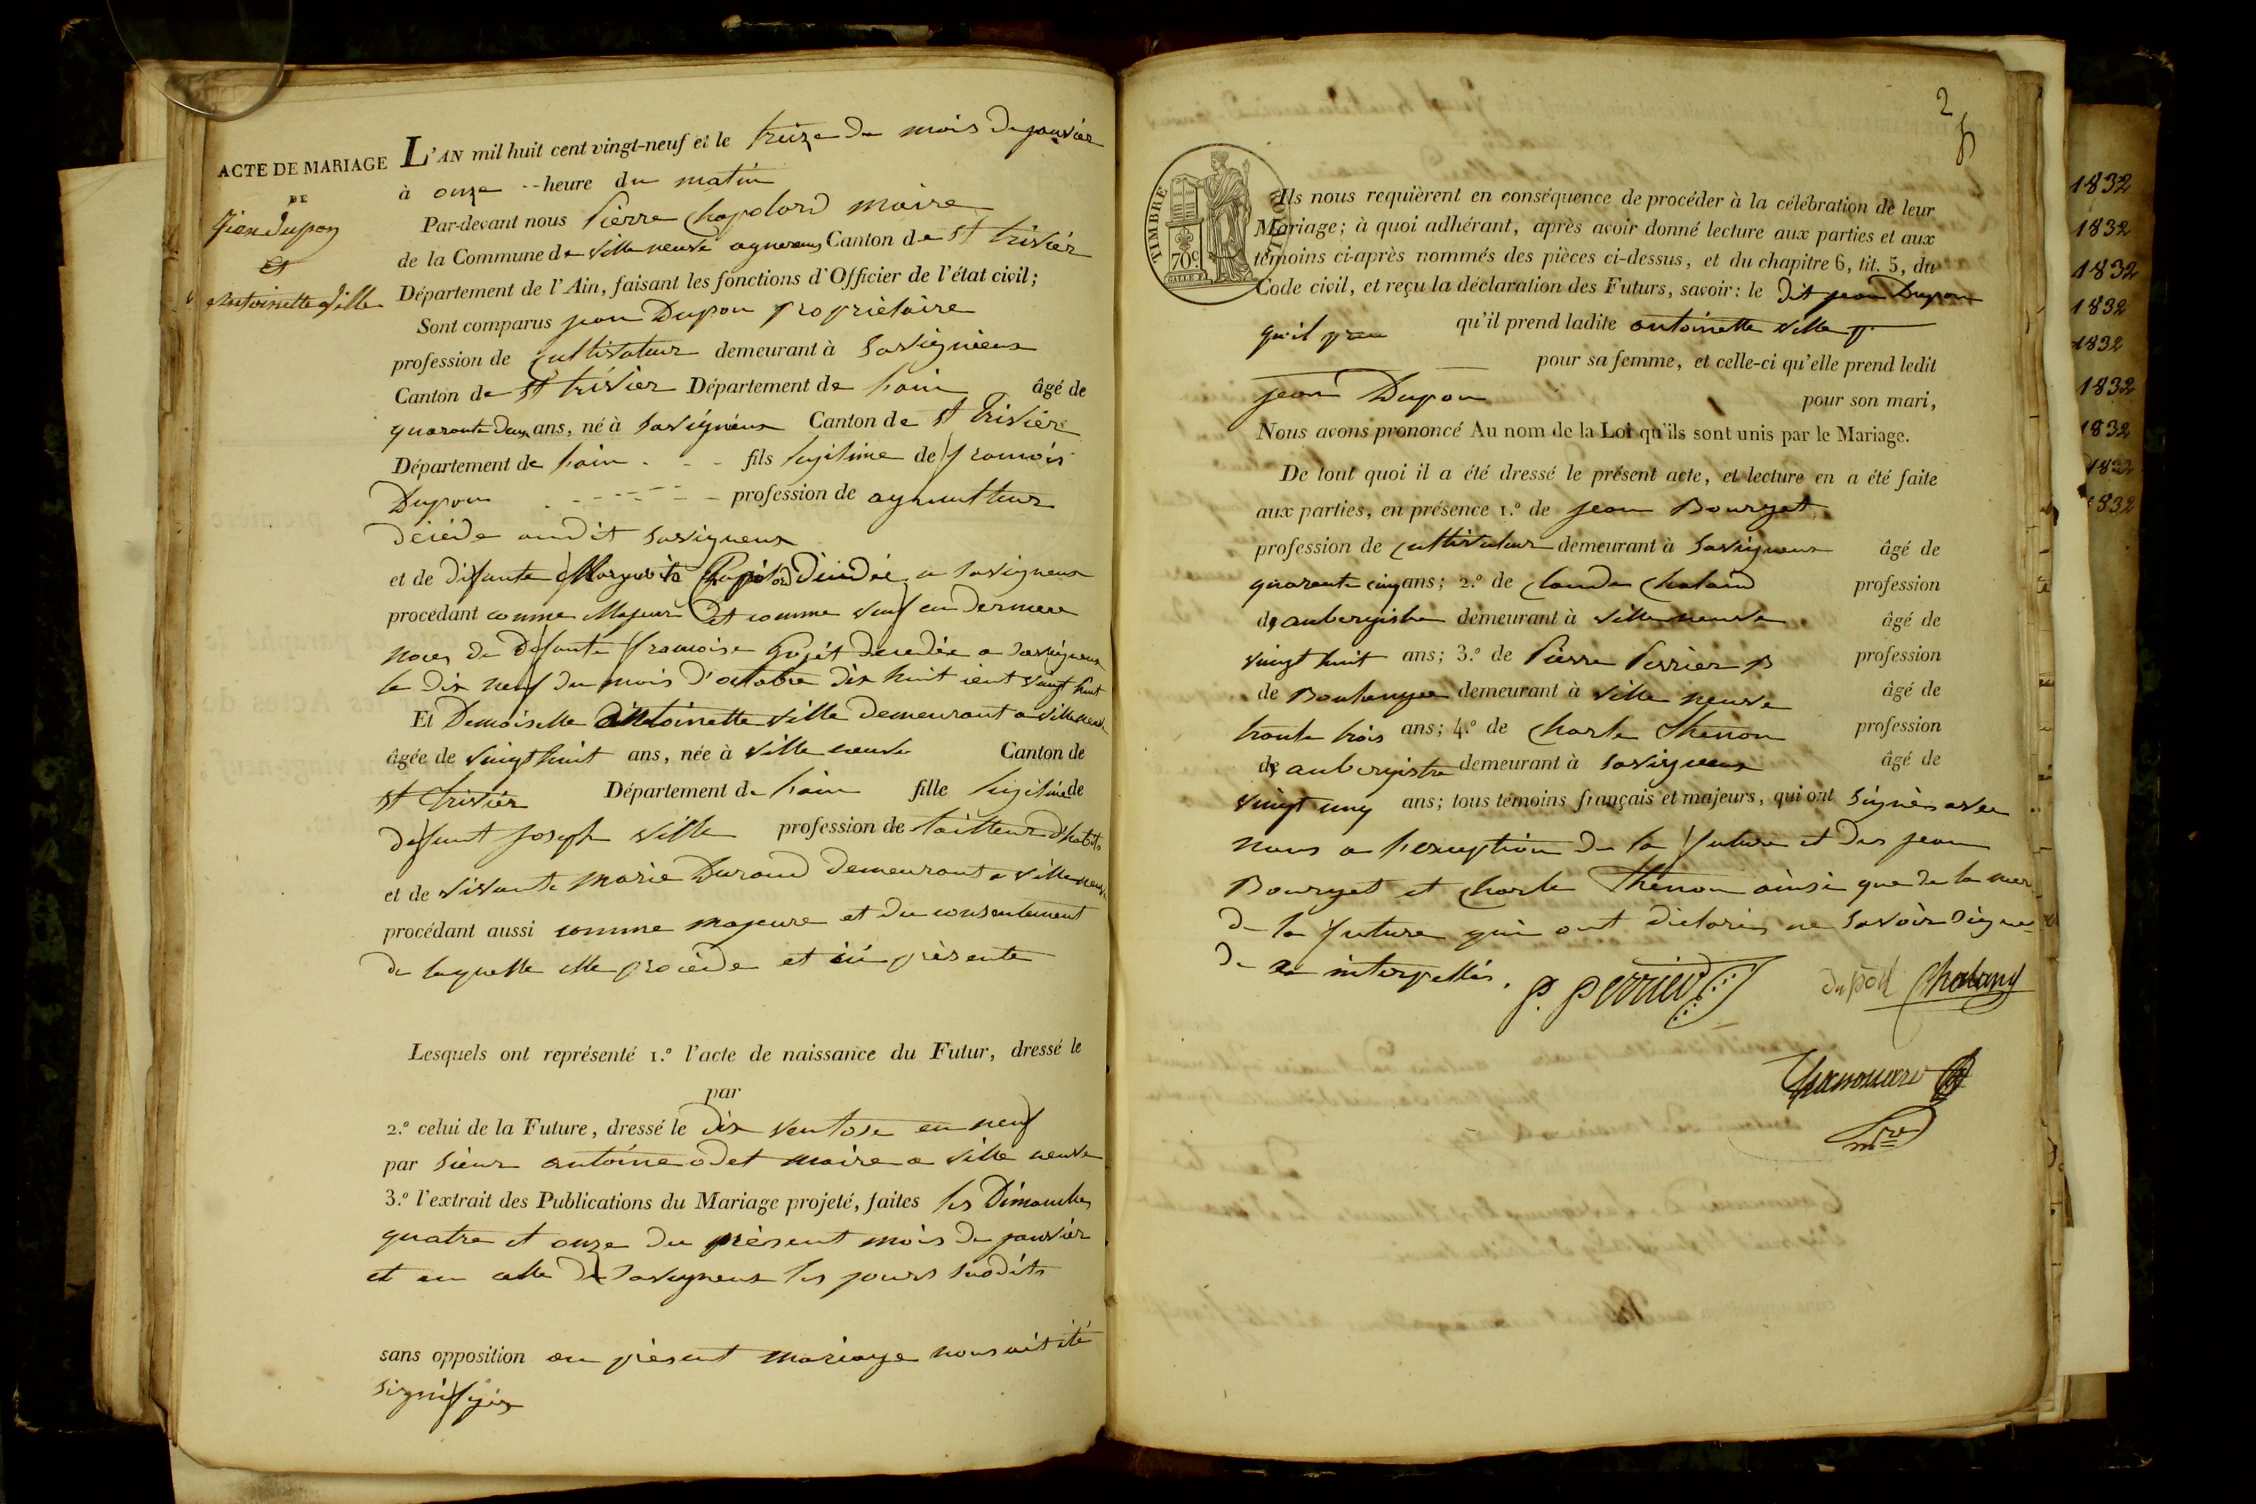 ACTE DE MARIAGE
DE
Jean Dupon
et
antoinette Ville
L'AN mil huit cent vingt-neuf et le treize du mois de janvier
à onze -- heure du matin
Par-devant nous Pierre Chapolard maire
de la Commune de Ville neuve agnereins Canton de St trivier
Département de l'Ain, faisant les fonctions d'Officier de l'état civil;
Sont comparus jean Dupon propriètaire
profession de Cultivateur demeurant à Savigneux
Canton de St trivier Département de l'ain âgé de
quarante deux ans, né à Savigneux Canton de St Trivier
Département de l'ain - - - fils legitime de francois
Dupon - - - - - - profession de
décédé audit Savigneux
et de difunte Marguerite décédée a Savigneux
procédant comme Majeur et comme veuf en derniere
noces de défunte francoise décédée a Savigneux
le dix neuf du mois d'octobre dix huit cent vingt huit
Et Demoiselle antoinette Ville demeurant a Ville neuve
âgée de vingt huit ans, née à Ville neuve Canton de
St trivier Département de l'ain fille legitime de
defunt Joseph Ville profession de tailleur d'habits
et de vivante Marie Durand demeurant a Ville neuve
procédant aussi comme majeure et du consentement
de laquelle elle procède et ici présente
Lesquels ont représenté 1.º l'acte de naissance du Futur, dressé le
par
2.º celui de la Future, dressé le dix ventose an neuf
par Sieur antoine odet maire a Ville neuve
3.º l'extrait des Publications du Mariage projeté, faites les Dimanches
quatre et onze du présent mois de janvier
et en celle de Savigneux les jours susdits
sans opposition au présent mariage nous ait été
signifyéz
2
TIMBRE ROYAL
70c
Ils nous requièrent en conséquence de procéder à la célébration de leur
Mariage; à quoi adhérant, après avoir donné lecture aux parties et aux
témoins ci-après nommés des pièces ci-dessus, et du chapitre 6, tit. 5, du
Code civil, et reçu la déclaration des Futurs, savoir: le dit jean Dupon
qu'il pren qu'il prend ladite antoinette Ville
pour sa femme, et celle-ci qu'elle prend ledit
jean Dupon pour son mari,
Nous avons prononcé Au nom de la Loi qu'ils sont unis par le Mariage.
De tout quoi il a été dressé le présent acte, et lecture en a été faite
aux parties, en présence 1.º de jean Bourget
profession de cultivateur demeurant à Savigneux âgé de
quarante cinq ans; 2.º de Claude Chaland profession
de aubergiste demeurant à Ville neuve âgé de
vingt huit ans; 3.º de Pierre Perrier profession
de Boulanger demeurant à Ville neuve âgé de
trante trois ans; 4.º de Charle Thenon profession
de aubergiste demeurant à Savigneux âgé de
vingt cinq ans; tous témoins français et majeurs, qui ont signés avec
nous a l'exception de la future et des jean
Bourget et Charle Thenon ainsi que de la mere
de la future qui ont déclarés ne savoir signer
de ce interpellés.
P. Perrier
dupon
Chaland
mre
1832
1832
1832
1832
1832
1832
1832
1832
1832